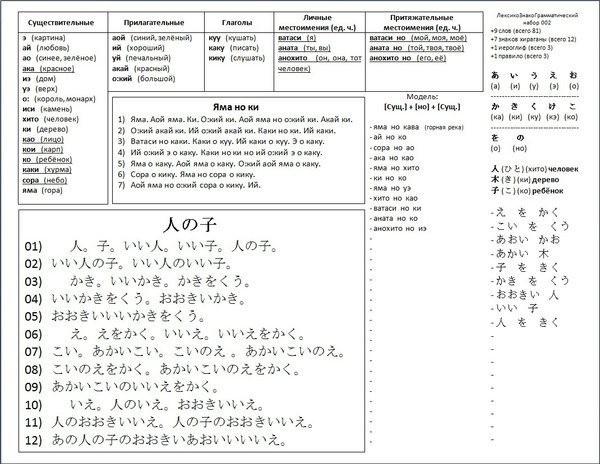 Существительные
э (картина)
ай (любовь)
ао (синее, зелёное)
ака (красное)
иэ (дом)
уэ (верх)
о: (король, монарх)
иси (камень)
хито (человек)
ки (дерево)
као (лицо)
кои (карп)
ко (ребёнок)
каки (хурма)
сора (небо)
яма (гора)
Прилагательные
аой (синий, зелёный)
ий (хороший)
уй (печальный)
акай (красный)
о:кий (большой)
Глаголы
куу (кушать)
каку (писать)
кику (слушать)
Личные местоимения (ед. ч.)
ватаси (я)
аната (ты, вы)
анохито (он, она, тот человек)
Притяжательные местоимения (ед. ч.)
ватаси но (мой, моя, моё)
аната но (той, твоя, твоё)
анохито но (его, её)
Яма но ки
1) Яма. Аой яма. Ки. О:кий ки. Аой яма но о:кий ки. Акай ки.
2) О:кий акай ки. Ий о:кий акай ки. Каки но ки. Ий каки.
3) Ватаси но каки. Каки о куу. Ий каки о куу. Э о каку.
4) Ий о:кий э о каку. Каки но ки но ий о:кий э о каку.
5) Яма о каку. Аой яма о каку. О:кий аой яма о каку.
6) Сора о кику. Яма но сора о кику.
7) Аой яма но о:кий сора о кику. Ий.
Модель:
[Сущ.] + [но] + [Сущ.]
- яма но кава (горная река)
- ай но ко
- сора но ао
- ака но као
- яма но хито
- ки но ко
- яма но уэ
- хито но као
- ватаси но ки
- аната но ко
- анохито но иэ
ЛексикоЗнакоГрамматический
набор 002
+9 слов (всего 81)
+7 знаков хираганы (всего 12)
+1 иероглиф (всего 3)
+1 правило (всего 3)
あ い う え お
(а) (и) (у) (э) (о)
か き く け こ
(ка) (ки) (ку) (кэ) (ко)
を の
(о) (но)
人 (ひと) (хито) человек
木 (き) (ки) дерево
子 (こ) (ко) ребёнок
- え を かく
- こい を くう
- あおい かお
- あかい 木
- 子 を きく
- かき を くう
- おおきい 人
- いい 子
- 人 を きく
人の子
01) 人。子。いい人。いい子。人の子。
02) いい人の子。いい人のいい子。
03) かき。いいかき。かきをくう。
04) いいかきをくう。おおきいかき。
05) おおきいいいかきをくう。
06) え。えをかく。いいえ。いいえをかく。
07) こい。あかいこい。こいのえ 。あかいこいのえ。
08) こいのえをかく。あかいこいのえをかく。
09) あかいこいのいいえをかく。
10) いえ。人のいえ。おおきいいえ。
11) 人のおおきいいえ。人の子のおおきいいえ。
12) あの人の子のおおきいあおいいいいえ。